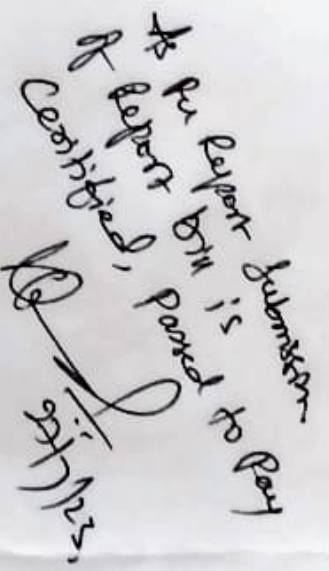 As Per Report Submission
of Report bill is
Certified, Passed to Pay